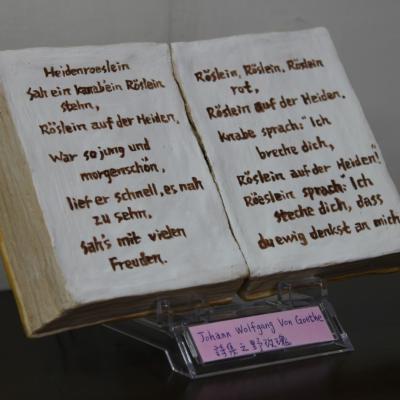 Heidenroeslein
Sah ein knab'ein Röslein
stehn,
Röslein auf der Heiden,
War so jung und
morgenschön,
lief er schnell, es nah
zu sehn,
Sah's mit vielen
Freuden.
Röslein, Röslein, Röslein
rot,
Röslein auf der Heiden.
Knabe sprach: "Ich
breche dich,
Röslein auf der Heiden!"
Röeslein sprach: "Ich
steche dich, dass
du ewig denkst an mich
Johann Wolfgang Von Goethe
詩集之野玫瑰